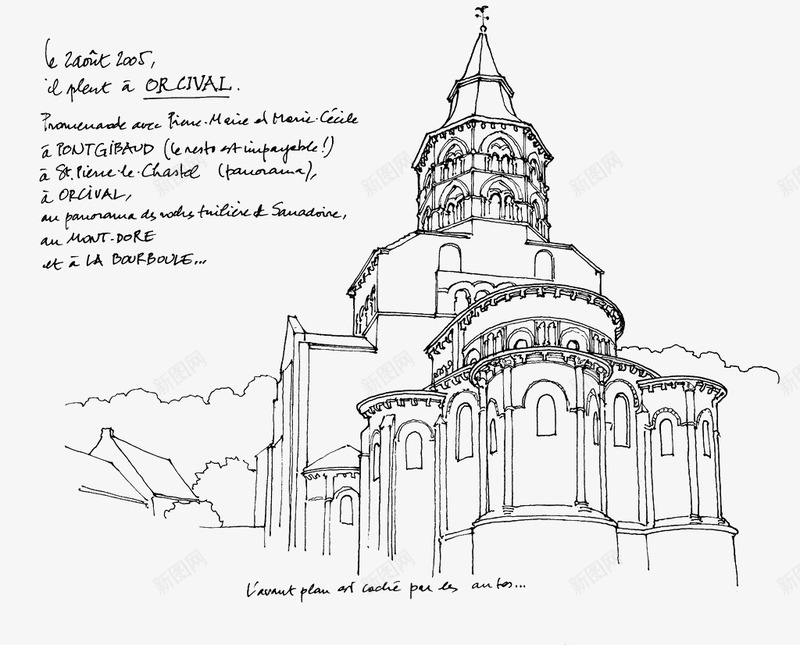 le 2 août 2005,
il pleut à ORCIVAL.
Promenade avec Pierre-Marie et Marie-Cécile
à PONTGIBAUD (le resto est impayable!)
à St. Pierre-le-Chastel (panorama),
à ORCIVAL,
au panorama des roches tuilière & Sanadoire,
au MONT-DORE
et à LA BOURBOULE...
L'avant plan est caché par les autos...